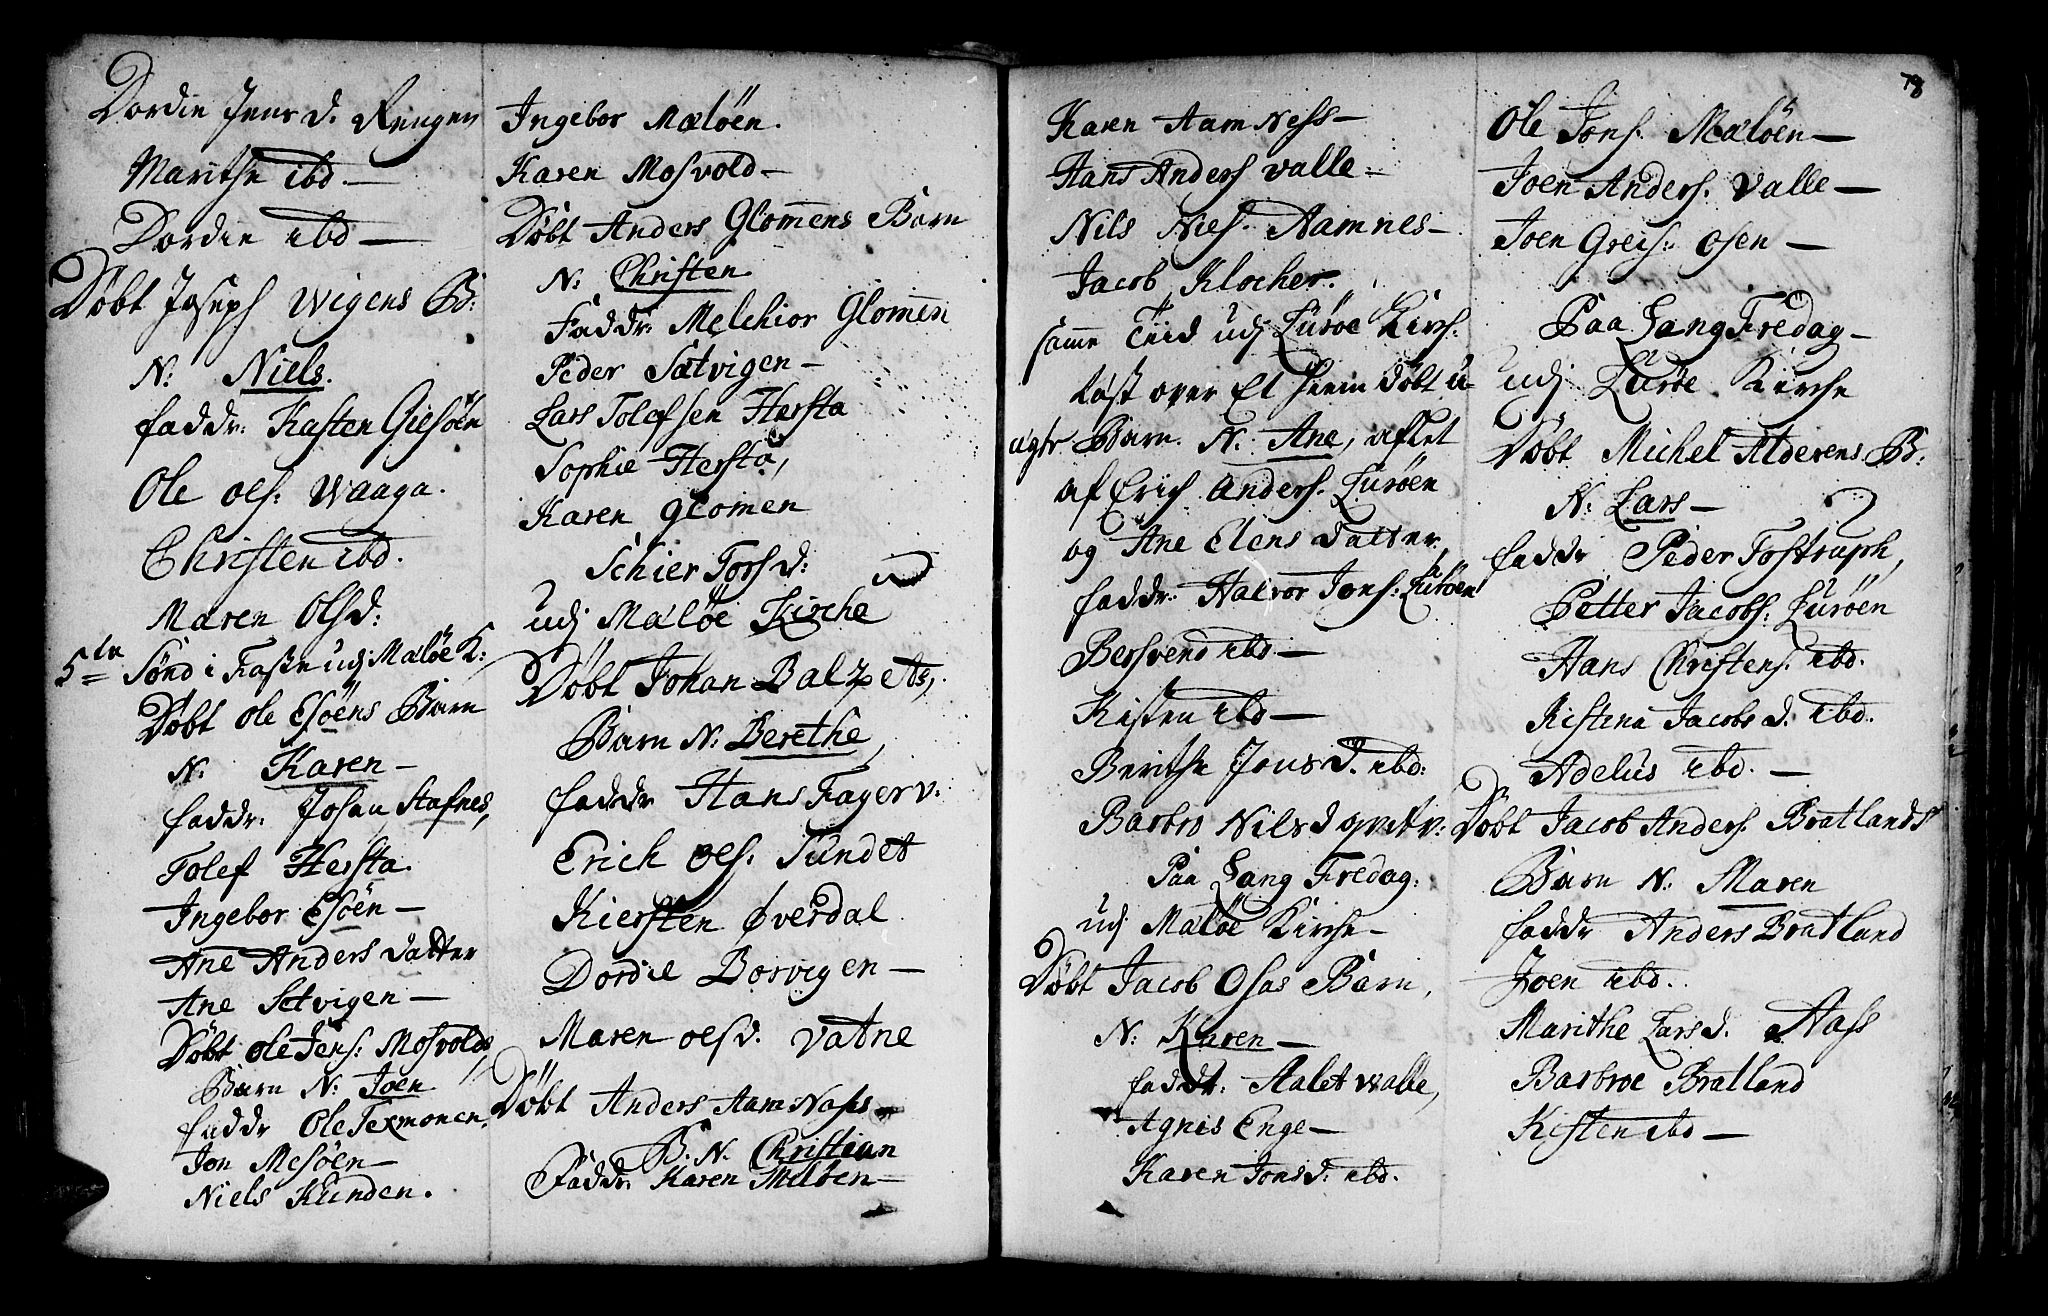 Dordie Jens d. Rengen
Marithe ibd. —
Dordie ibd —
Döbt Joseph Wigens B:
N: Niels.
faddr: Kasten Giesöen
Ole oes: Waaga.
Christen ibd.
Maren Olsd:
5te Sönd i Faste udj Melöe K:
Döbt Ole Esöens Barn
N: Karen —
faddr: Johan Stafnes,
Tolef Hersta.
Ingebor Esöen —
Ane Anders datter
Ane Setvigen —
Döbt Ole Jens: Mosvolds,
Barn N: Joen
faddr Ole Texmonen.
Jon Mesöen —
Niels Kunden.
Ingebor Melöen.
Karen Mosvold —
Döbt Anders Glom̄ens Barn
N: Christen
Faddr: Melchior Glom̄en
Peder Setvigen —
Lars Tolefsen Hersta
Sophie Hersta,
Karen Glomen
Schier Torsd:
udj Melöe Kirche
Döbt Johan Balzets,
Barn N: Berethe,
faddr Hans Fagerv.
Erich oes: Sundet
Kiersten Øverdal
Dordie Borvigen —
Maren oesd. Vatne
Döbt Anders Aam Næss
B: N. Christian
Faddr: Karen Melöen —
Karen Aam Ness —
Hans Anders Valle —
Nils Nies. Aamnes —
Jacob Klocher.
sam̄e Tiid udj Luröe Kirch:
læst over Et hiemdöbt u-
ægte Barn. N: Ane, aflet
af Erich Anders. Luröen
og Ane Elens datter,
faddr: Halvor Jons: Luröen
Bersvend ibd —
Kisten ibd —
Berithe Jons d. ibd:
Barbro Nilsd
Paa Lang Fredag.
udj Melöe Kirche —
Döbt Jacob Osas Barn,
N: Karen —
faddr: Aalet Walle,
Agnis Enge —
Karen Jonsd: ibd.
78
Ole Jons: Melöen —
Joen Anders: Valle —
Joen Greis: Osen —
Paa Lang Fredag —
udj Luröe Kirche
Döbt Michel Alderens B:
N: Lars —
faddr Peder Tostruph,
Petter Jacobs: Luröen
Hans Christens. ibd.
Kistena Jacobs d. ibd.
Adelus ibd. —
Döbt Jacob Anders: Bratlands
Barn N: Maren
faddr Anders Bratland
Joen ibd.
Marithe Lars d. Næss
Barbroe Bratland
Kisten ibd —